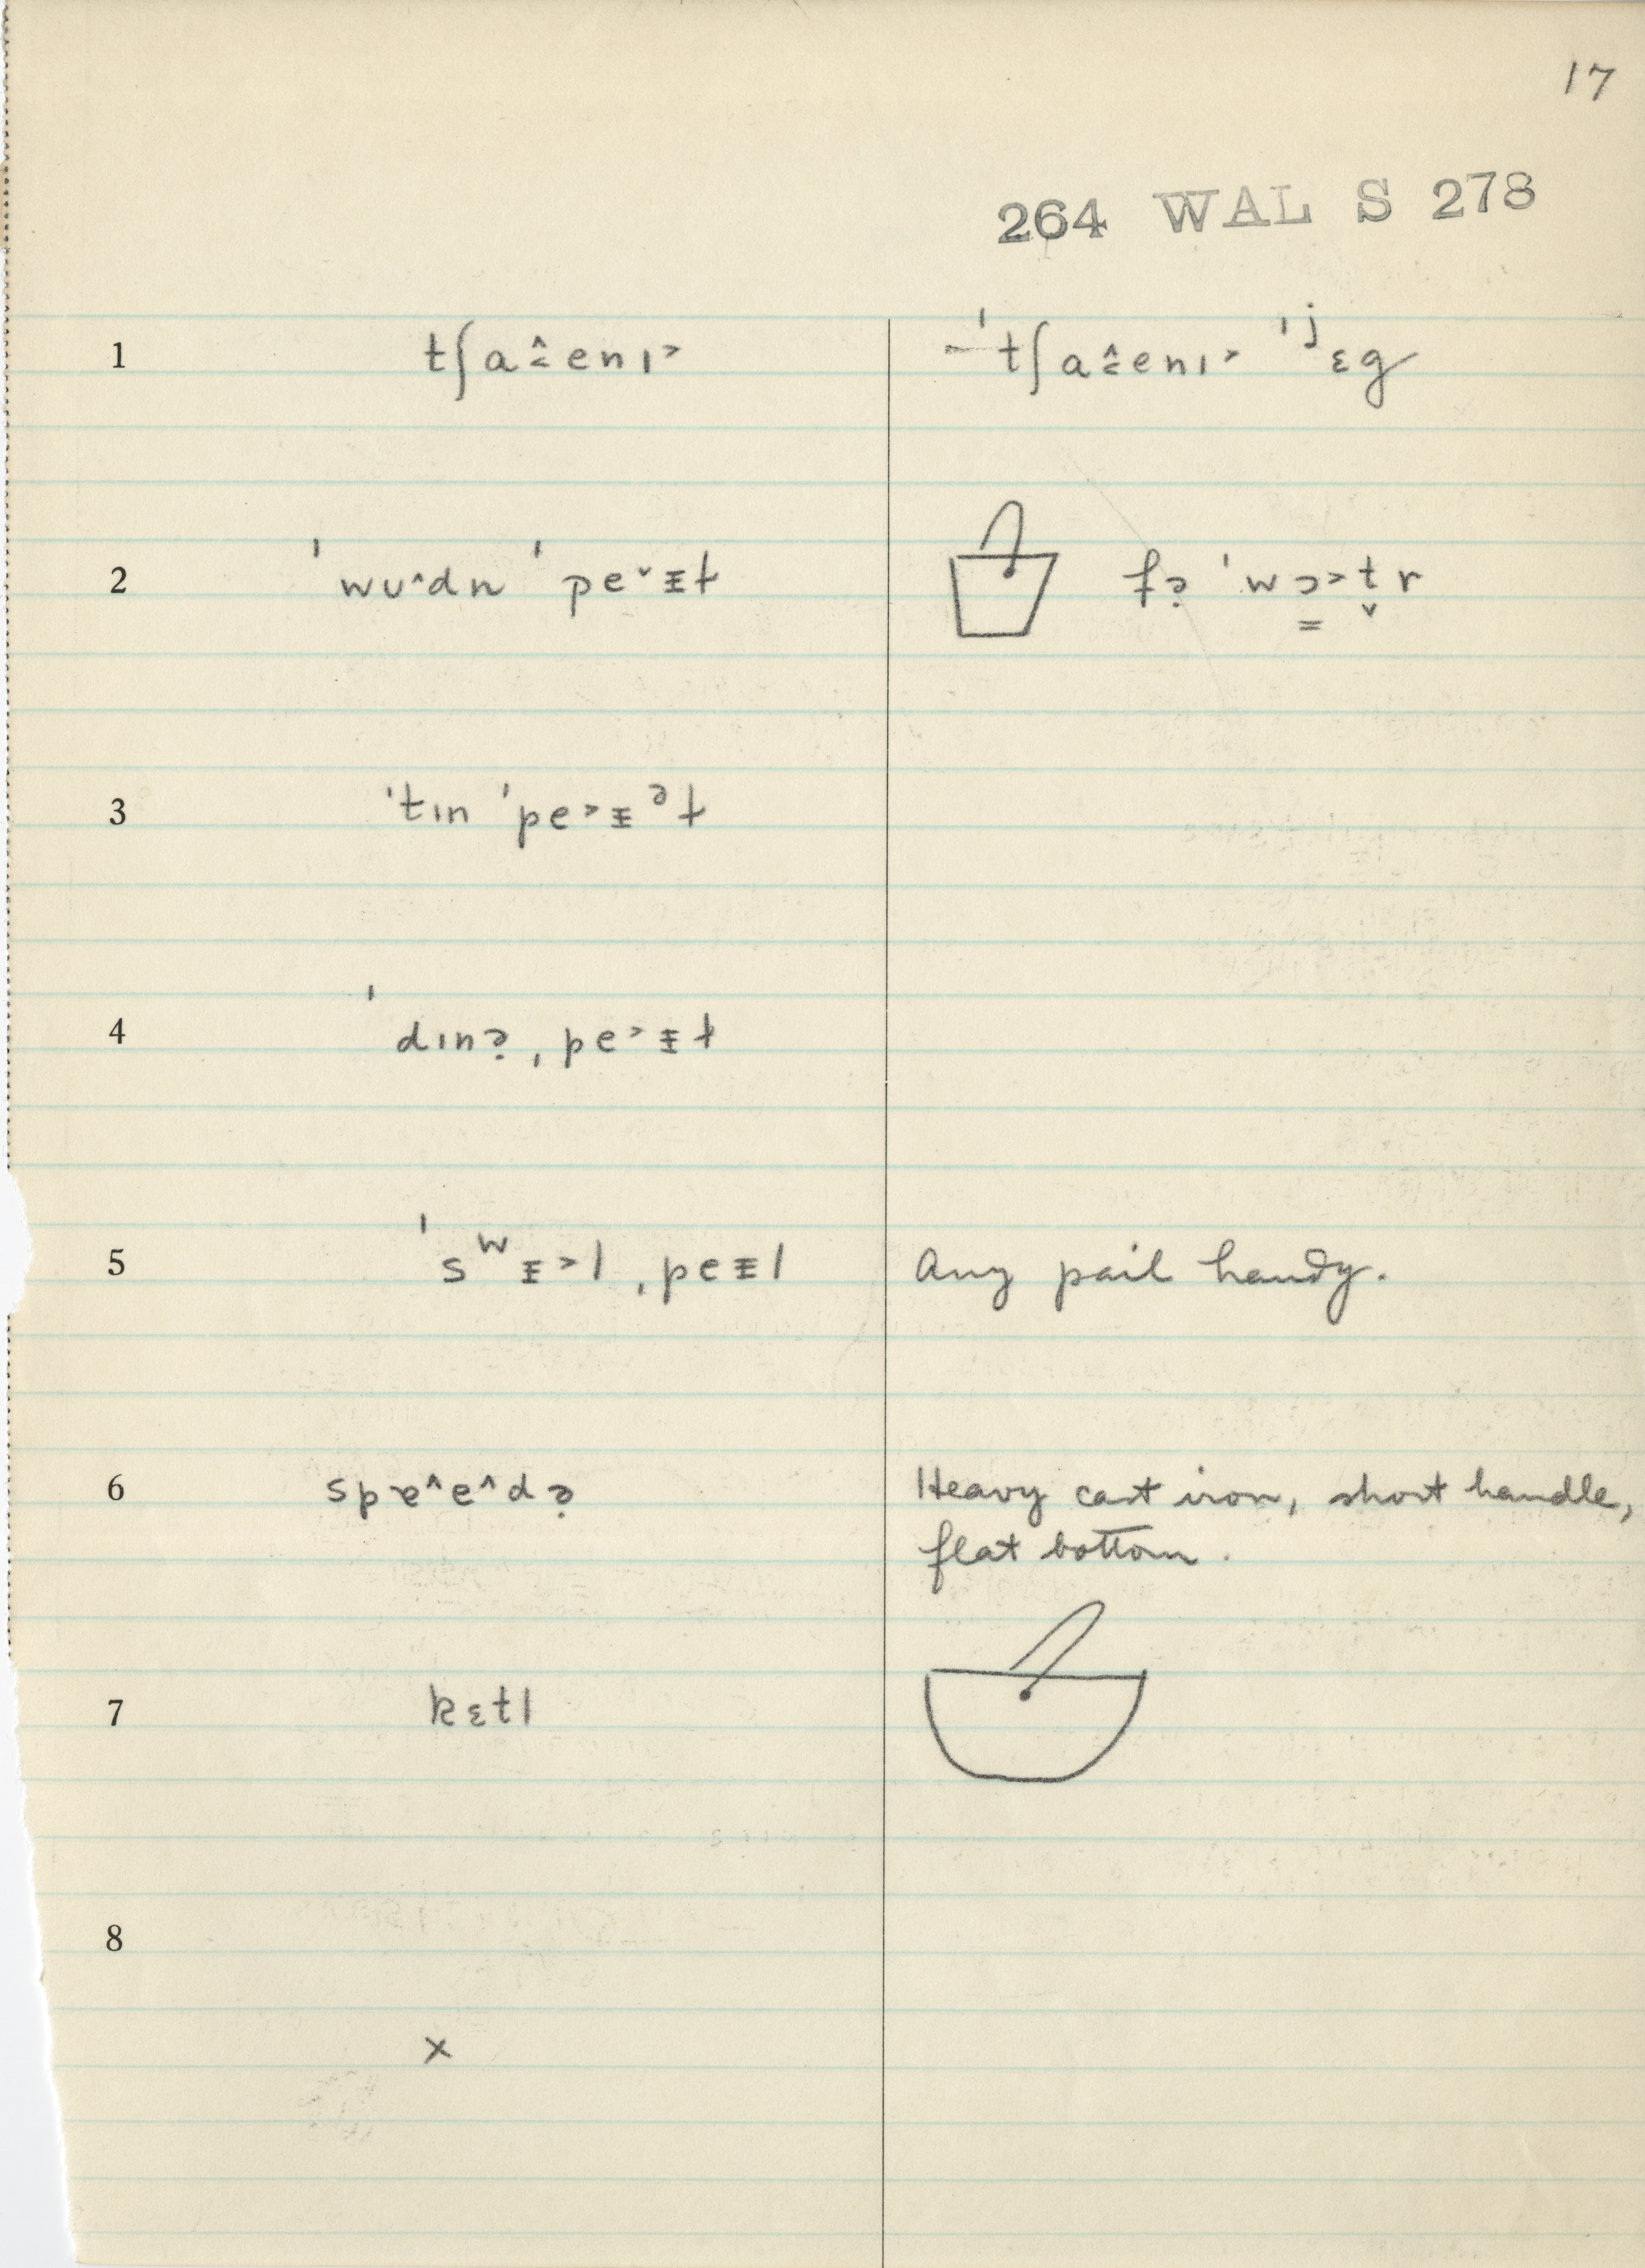 17
264 WAL S 278
1 tʃa˄̳enɪ˃ – ˈtʃa˄̳enɪ˃ ˈʲɛg
2 ˈwʊ˄dn ˈpe˅ɪ̵ɫ fɚ ˈwɔ̳˃t̬r
3 ˈtɪn ˈpe˃ɪ̵ᵊɫ
4 ˈdɪnɚ ˌpe˃ɪ̵ɫ
5 ˈsʷɪ̵˃l ˌpeɪ̵l Any pail handy.
6 spɐ˄e˄dɚ Heavy cast iron, short handle,
flat bottom.
7 kɛtl
8
x